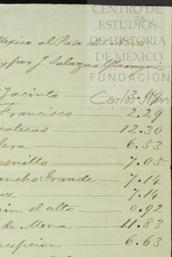 CENTRO DE
ESTUDIOS
DE HISTORIA
DE MEXICO
FUNDACIÓN
Mexico al Paso del Norte
por J. Salazar
Jacinto
Francisco 2.29
catecas 12.30
lera 6.53
esnillo 7.05
ancho Grande 7.14
7.14
in el alto 0.92
de Mena 11.83
cepcion 6.63